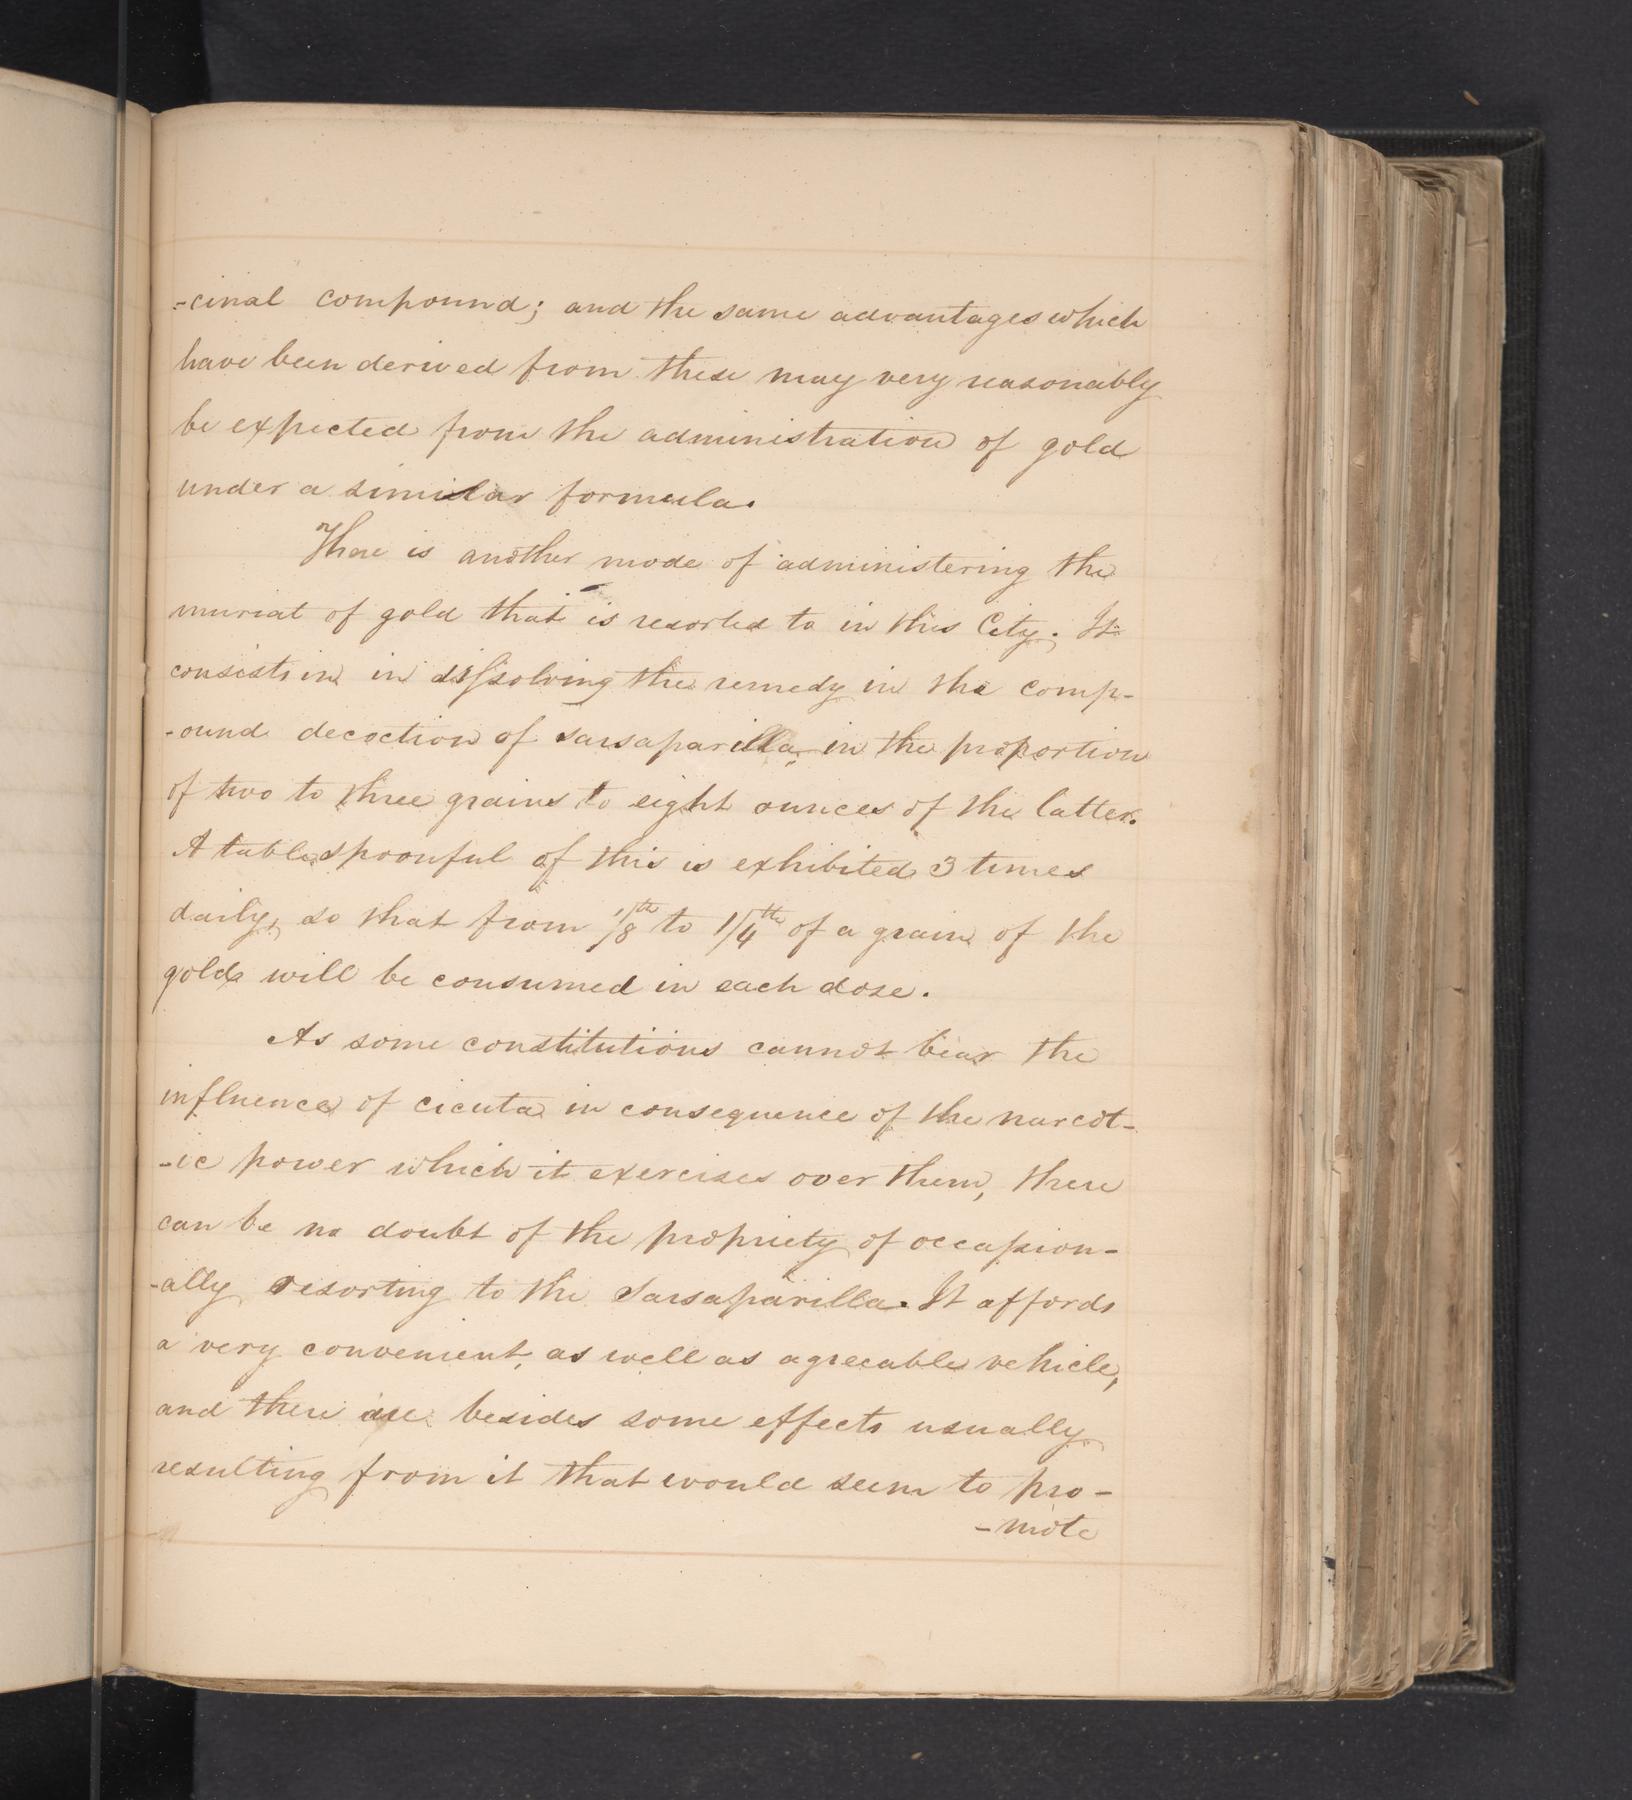 =cinal compound; and the same advantages which
have been derived from these may very reasonably
be expected from the administration of gold
under a similar formula.
There is another mode of administering the
muriat of gold that is resorted to in this City. It
consists in in dissolving the remedy in the comp-
-ound decoction of sarsaparilla, in the proportion
of two to three grains to eight ounces of the latter.
A tablespoonful of this is exhibited 3 times
daily, so that from 1/8th to 1/4th of a grain of the
gold will be consumed in each dose.
As some constitutions cannot bear the
influence of cicuta in consequence of the narcot-
-ic power which it exercises over them, there
can be no doubt of the propriety of occassion-
-ally resorting to the Sarsaparilla. It affords
a very convenient, as well as agreeable vehicle,
and there are besides some effects usually
resulting from it that would seem to pro-
-mote